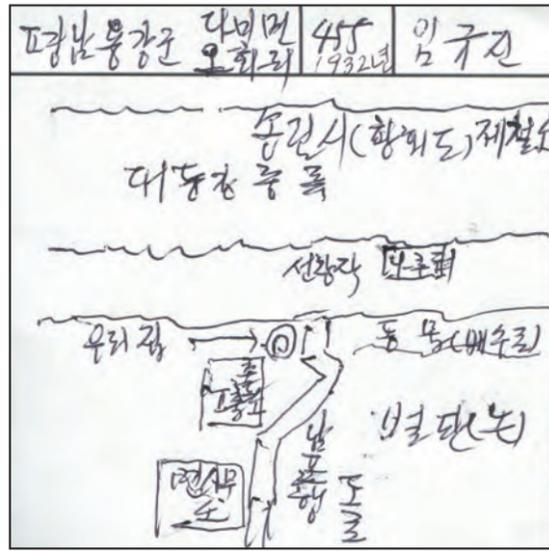 평남 용강군 다미면 오회리 455 1932년 임규진
송림시(황해도)제철소
대동강 중류
선창각
우리집
동 뚝(배수로)
벌판(논)
면사무소
남포행 도로